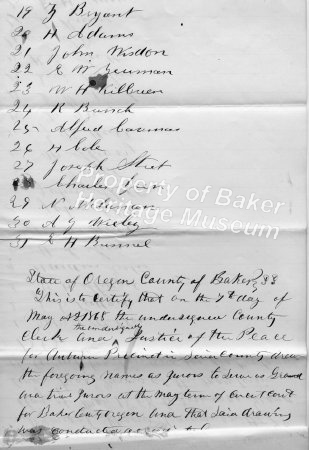 19 Z Bryant
20 H Adams
21 John Wisdon
22 E W
23 W H Kilburn
24 R Busch
25 Alfred
26 H Cole
27 Joseph
Charles
29 N
30 A J Wiley
31 E H Bunnel
Property of Baker
Heritage Museum
State of Oregon County of Baker SS
This is to Certify that on the day of
May AD 1868 the undersigned County
Clerk and the undersigned Justice of the Peace
for Auburn Precinct in Said County drew
the foregoing names as jurors to serve as Grand
and trial jurors at the May term of Circuit Court
for Baker Cont Oregon and that Said drawing
was conducted